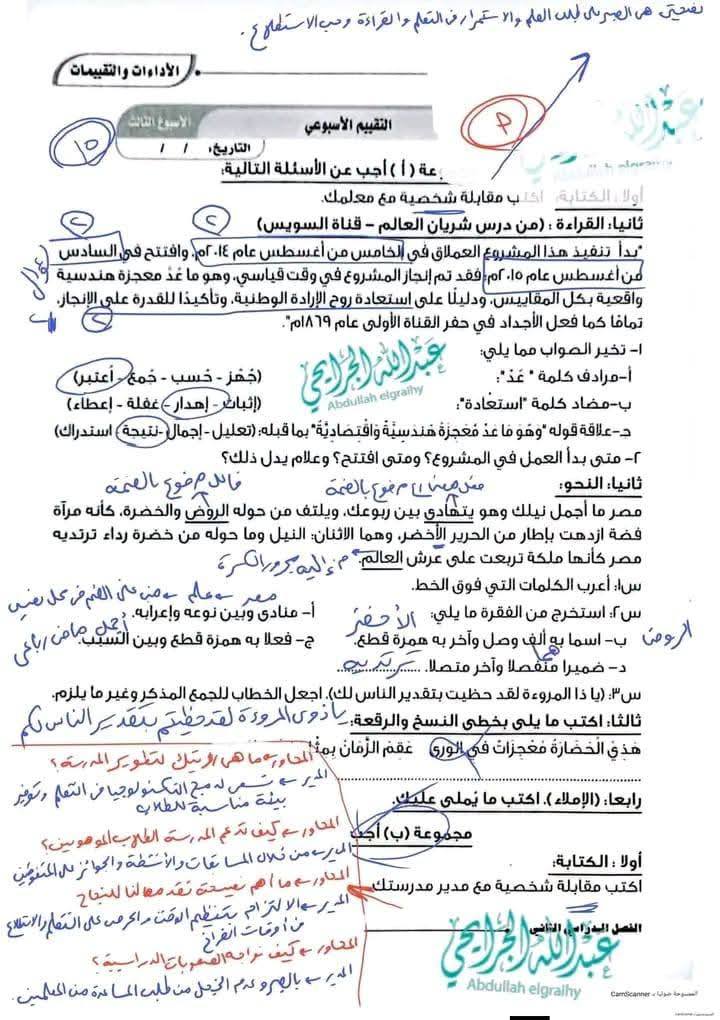 نصيحتي هي الصبر على طلب العلم والاستمرار في التعلم والقراءة وحب الاستطلاع.
الأداءات والتقييمات
التقييم الأسبوعي الأسبوع الثالث
التاريخ: / /
عبدالله الجرايحي
Abdullah elgraihy
مجموعة (أ) أجب عن الأسئلة التالية:
أولا: الكتابة: اكتب مقابلة شخصية مع معلمك.
ثانيا: القراءة: (من درس شريان العالم – قناة السويس)
"بدأ تنفيذ هذا المشروع العملاق في الخامس من أغسطس عام ٢٠١٤م، وافتتح في السادس
من أغسطس عام ٢٠١٥م؛ فقد تم إنجاز المشروع في وقت قياسي، وهو ما عُدَّ معجزة هندسية
واقعية بكل المقاييس، ودليلًا على استعادة روح الإرادة الوطنية، وتأكيدًا للقدرة على الإنجاز،
تمامًا كما فعل الأجداد في حفر القناة الأولى عام ١٨٦٩م".
١- تخير الصواب مما يلي:
أ-مرادف كلمة "عُدّ": (جُهّز - حُسب - جُمع - أعتبر)
ب-مضاد كلمة "استعادة": (إثبات - إهدار - غفلة - إعطاء)
جـ-علاقة قوله "وَهُوَ مَا عُدَّ مُعْجِزَةً هَنْدَسِيَّةً وَاقْتِصَادِيَّةً" بما قبله: (تعليل - إجمال - نتيجة - استدراك)
٢- متى بدأ العمل في المشروع؟ ومتى افتتح؟ وعلام يدل ذلك؟
عبدالله الجرايحي
Abdullah elgraihy
ثانيا: النحو: فاعل مرفوع بالضمة
مصر ما أجمل نيلك وهو يتهادى بين ربوعك، ويلتف من حوله الروض والخضرة، كأنه مرآة
فضة ازدهت بإطار من الحرير الأخضر، وهما الاثنان: النيل وما حوله من خضرة رداء ترتديه
مصر كأنها ملكة تربعت على عرش العالم. م. إليه مجرور بالكسرة
س١: أعرب الكلمات التي فوق الخط.
س٢: استخرج من الفقرة ما يلي: أ- منادى وبين نوعه وإعرابه. مصر علم
ب- اسما به ألف وصل وآخر به همزة قطع. الأخضر الروض
ج- فعلا به همزة قطع وبين السبب. أجمل ماض رباعي
د- ضميرا منفصلا وآخر متصلا. هما ترتديه
س٣: (يا ذا المروءة لقد حظيت بتقدير الناس لك). اجعل الخطاب للجمع المذكر وغير ما يلزم.
يا ذوي المروءة لقد حظيتم بتقدير الناس لكم
ثالثا: اكتب ما يلي بخطي النسخ والرقعة:
هَذِي الْحَضَارَةُ مُعْجِزَاتٌ فِي الْوَرَى عَقِمَ الزَّمَانُ
رابعا: (الإملاء). اكتب ما يُملى عليك.
مجموعة (ب) أجب
أولا: الكتابة:
اكتب مقابلة شخصية مع مدير مدرستك
المحاور ← ما هي رؤيتك لتطوير المدرسة؟
المدير ← نسعى لدمج التكنولوجيا في التعلم وتوفير
بيئة مناسبة للطلاب
المحاور ← كيف تدعم المدرسة الطلاب الموهوبين؟
المدير ← من خلال المسابقات والأنشطة والجوائز للمتفوقين
المحاور ← ما أهم نصيحة تقدمها لنا للنجاح
المدير ← الالتزام بتنظيم الوقت والحرص على التعلم والاطلاع
في أوقات الفراغ
المحاور ← كيف نواجه الصعوبات الدراسية؟
المدير ← بالصبر وعدم الخجل من طلب المساعدة من المعلمين.
الفصل الدراسي الثاني
عبدالله الجرايحي
Abdullah elgraihy
الممسوحة ضوئيا بـ CamScanner